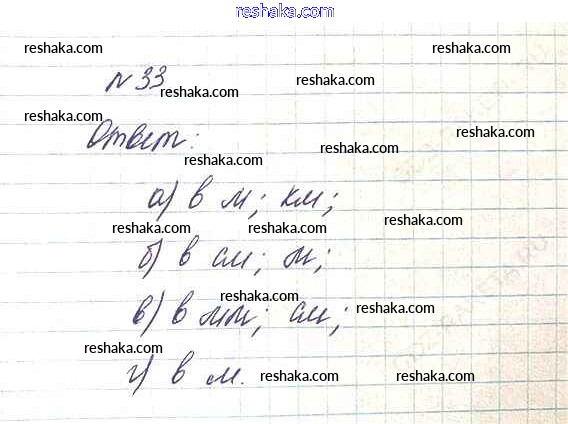 reshaka.com
reshaka.com reshaka.com
№ 33 reshaka.com reshaka.com
reshaka.com reshaka.com
Ответ: reshaka.com reshaka.com
reshaka.com
а) в м; км;
reshaka.com reshaka.com reshaka.com
б) в см; м;
reshaka.com reshaka.com
в) в мм; см;
reshaka.com
г) в м. reshaka.com reshaka.com